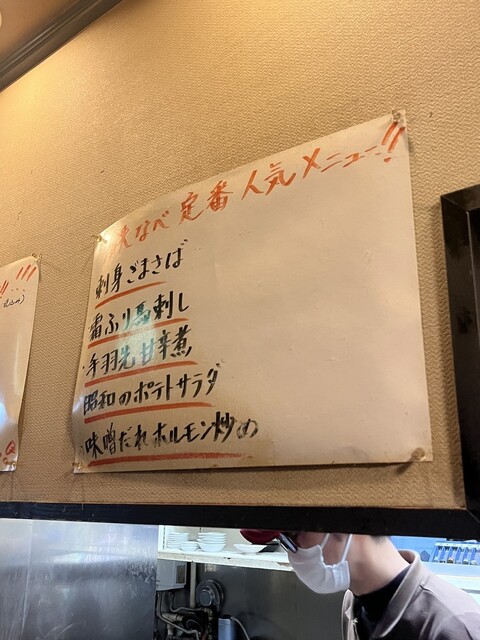 なべ 定番 人気メニュー!!
刺身ごまさば
霜ふり馬刺し
手羽先甘辛煮
昭和のポテトサラダ
味噌だれホルモン炒め
!!!